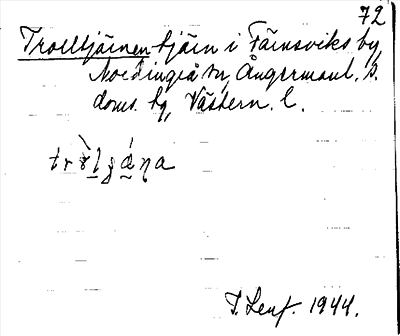 72
Trolltjärnen tjärn i Färnsviks by
Nordingrå sn, Ångermanl. s.
doms. hd, Västern. l.
1944.